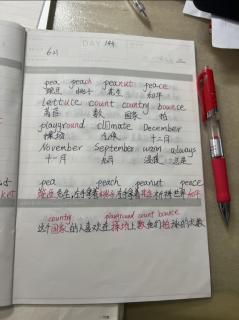 DAY 144
6.21
pea peach peanut peace
豌豆 桃子 花生 和平
lettuce count country bounce
莴苣 数 国家 拍
playground climate December
操场 气候 十二月
November September warm always
十一月 九月 温暖 总是
pea peach peanut peace
豌豆先生,左手拿着桃子右手拿着花生祈祷世界和平
country playground count bounce
这个国家的人喜欢在操场上数他们拍球的次数